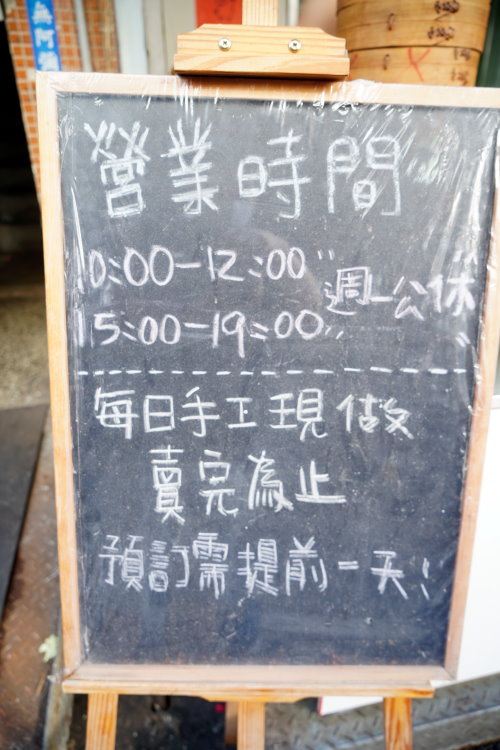 無阿彌
營業時間
10:00-12:00
15:00-19:00
"週一公休"
每日手工現做
賣完為止
預訂需提前一天!